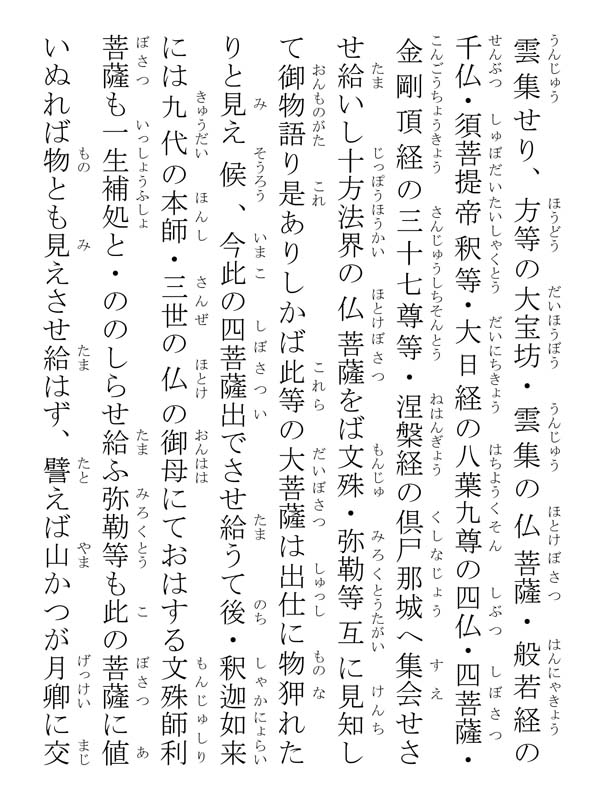 雲集せり、方等の大宝坊・雲集の仏菩薩・般若経の
千仏・須菩提帝釈等・大日経の八葉九尊の四仏・四菩薩・
金剛頂経の三十七尊等・涅槃経の倶尸那城へ集会せさ
せ給いし十方法界の仏菩薩をば文殊・弥勒等互に見知し
て御物語り是ありしかば此等の大菩薩は出仕に物狎れた
りと見え候、今此の四菩薩出でさせ給うて後・釈迦如来
には九代の本師・三世の仏の御母にておはする文殊師利
菩薩も一生補処と・ののしらせ給ふ弥勒等も此の菩薩に値
いぬれば物とも見えさせ給はず、譬えば山かつが月卿に交